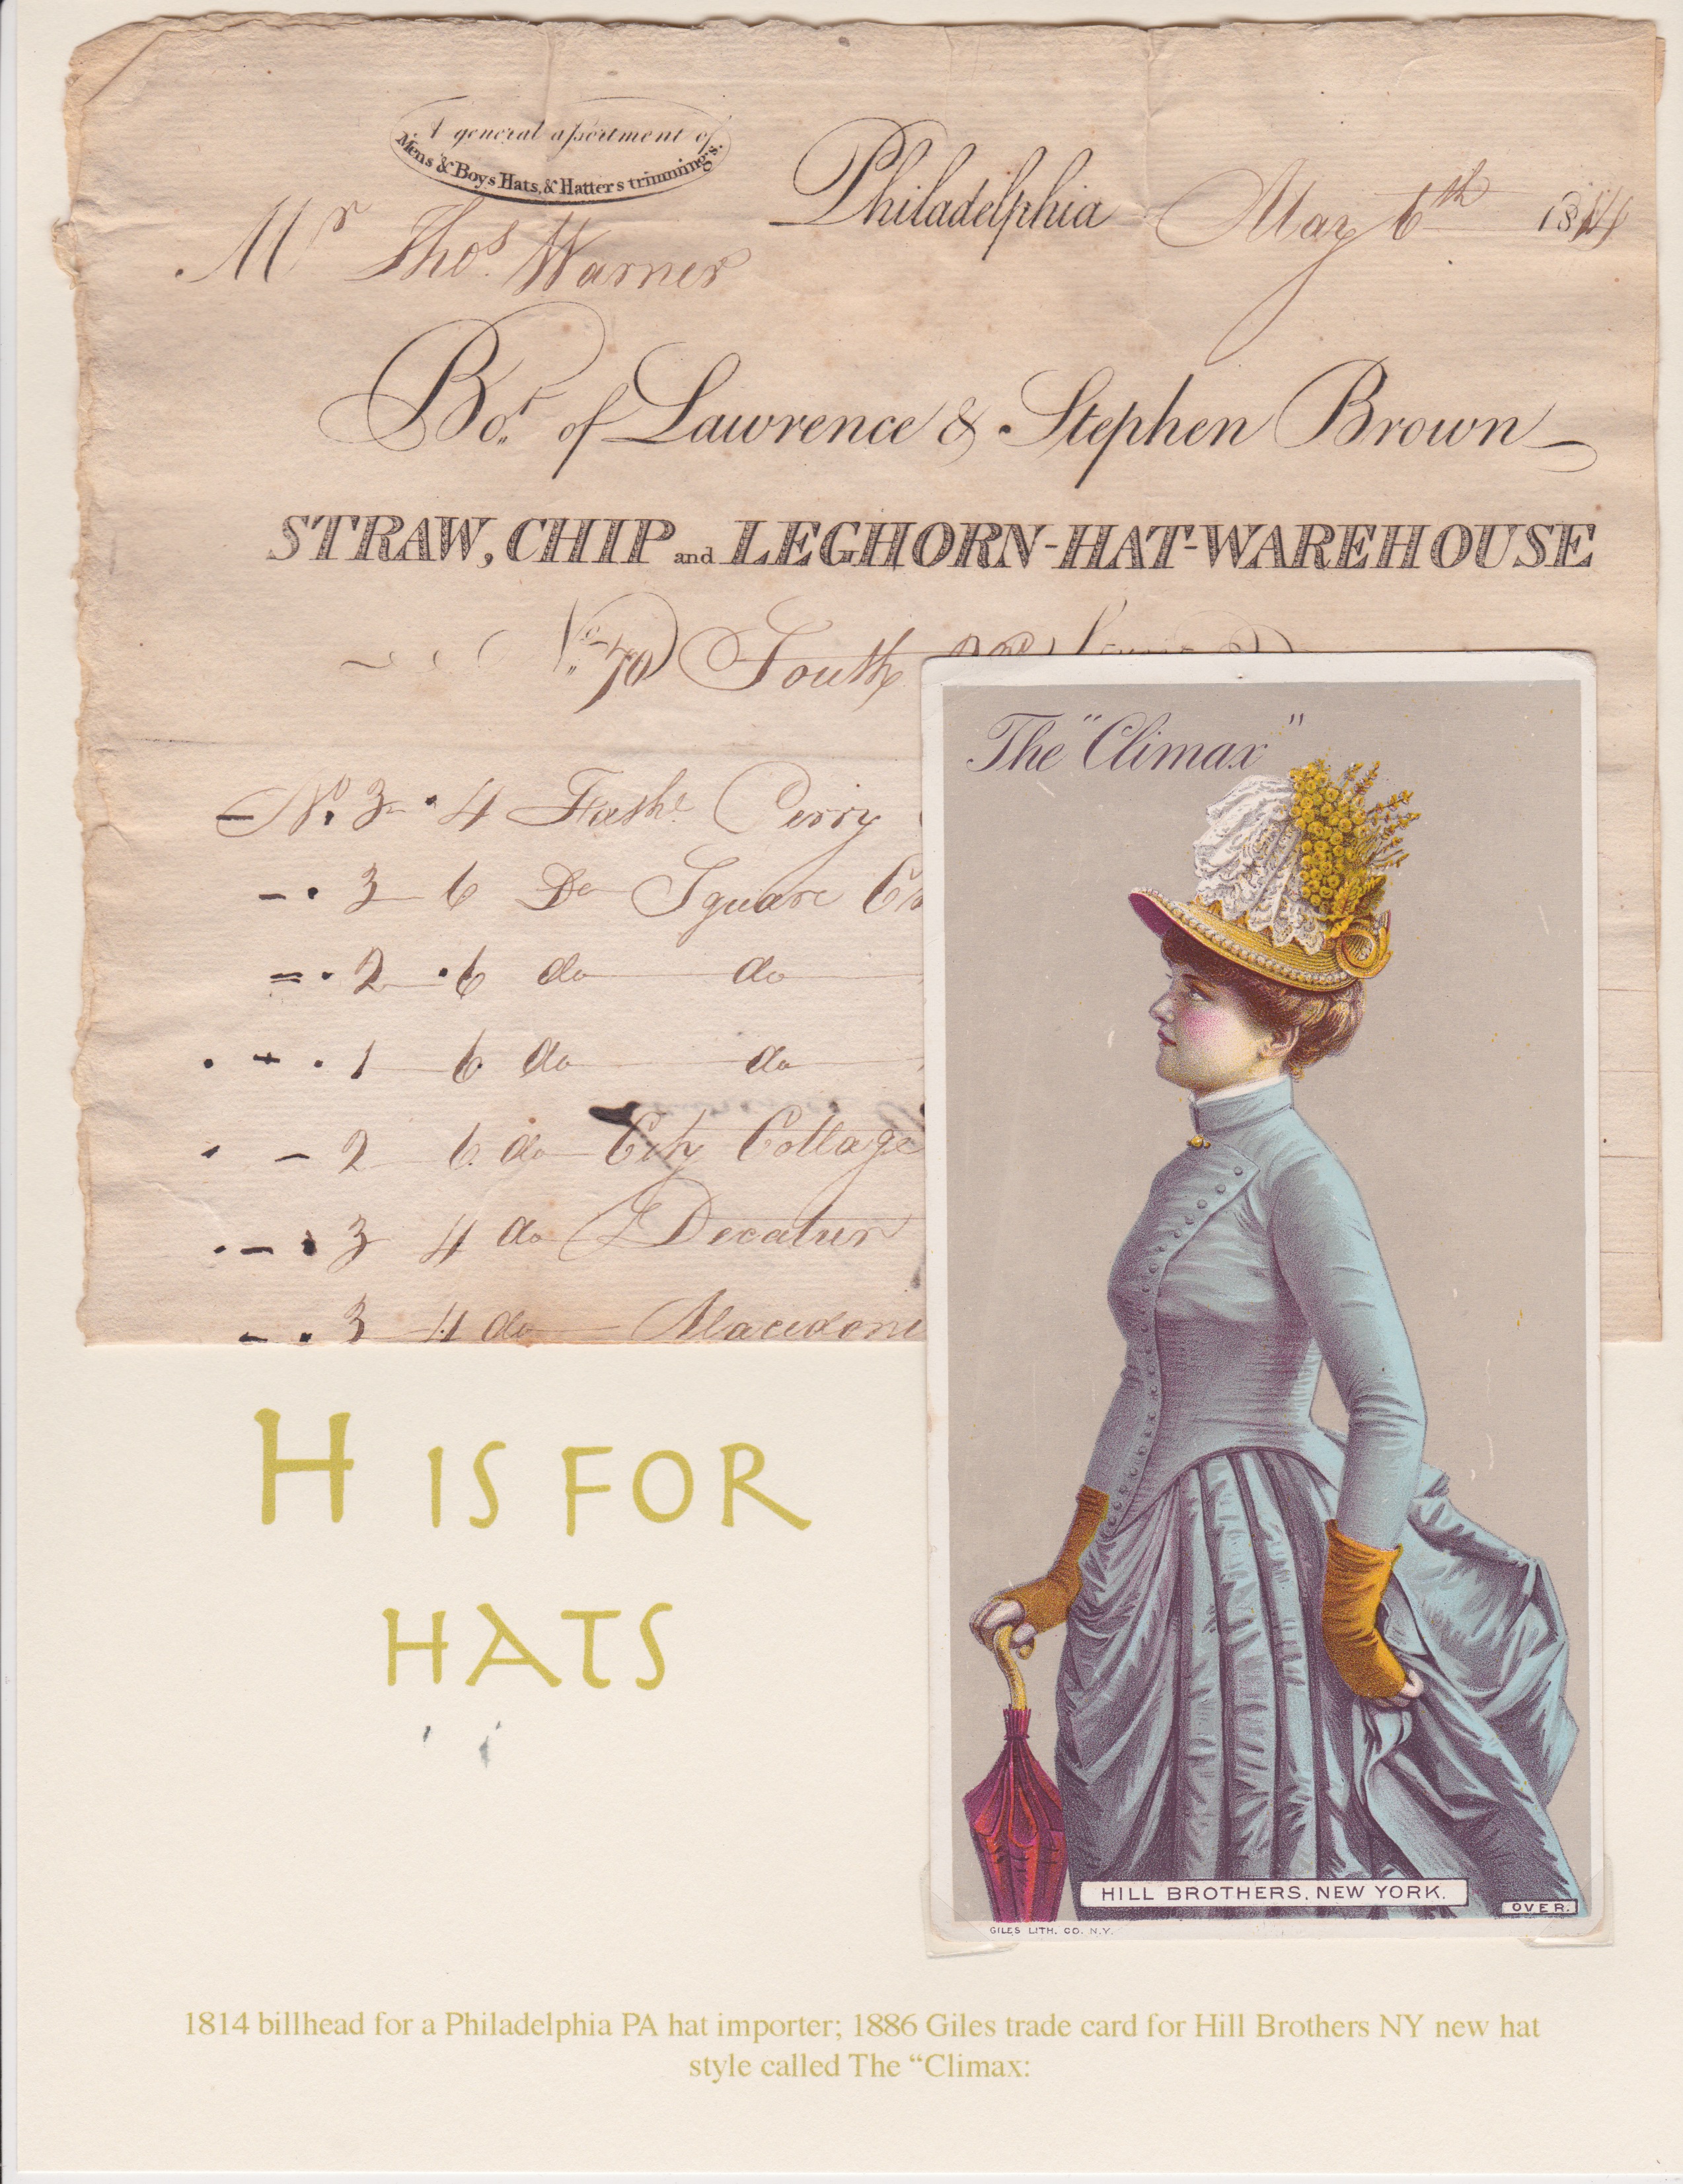 A general assortment of
Mens & Boys Hats, & Hatters trimmings.
Philadelphia May 6th 1814
Mr Thos. Warner
Bot. of Lawrence & Stephen Brown
STRAW, CHIP and LEGHORN-HAT-WAREHOUSE
No. 70 South
No. 3 4 Fashe. Perry
3 6 Do Square
2 6 do do
1 6 do do
2 6 do City Cottage
3 4 do Decatur
3 4 do
The "Climax"
HILL BROTHERS, NEW YORK.
OVER.
GILES LITH. CO. N.Y.
H IS FOR
HATS
1814 billhead for a Philadelphia PA hat importer; 1886 Giles trade card for Hill Brothers NY new hat
style called The “Climax: